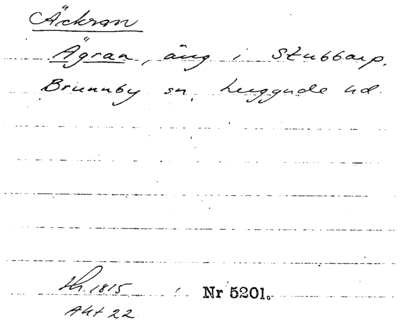 Äckran
Ägran, äng i Stubbarp.
Brunnby sn, Luggude hd.
Sh. 1815 Nr 5201.
Akt 22